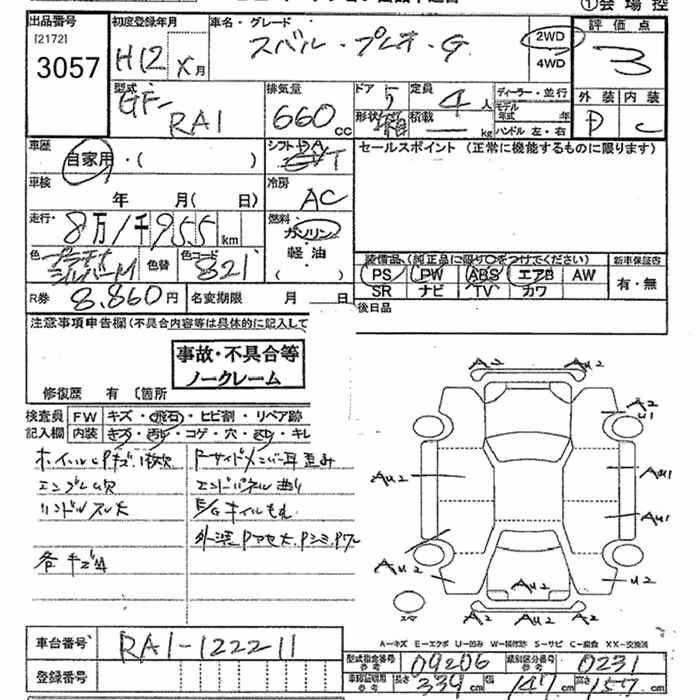 出品番号
[2172]
3057
初度登録年月
H12 X月
車名・グレード
スバル・プレオ・G
2WD
4WD
①会場控
評価点
3
外装 内装
D C
型式
GF-
RA1
排気量
660 cc
ドア 5
定員 4 人
形状
積載 — kg
ディーラー・並行
モデル年式 年
ハンドル 左・右
車歴
自家用・( )
シフト
セールスポイント (正常に機能するものに限ります)
車検
年 月( 日)
冷房
AC
走行・
8万1千955km
燃料
ガソリン
軽油
( )
色
シルバーM
色替
色コード
821
装備品(純正品に限り〇をつけてください)
PS PW ABS エアB AW
SR ナビ TV カワ
新車保証書
有・無
R券 8,860円
名変期限 月 日
後日品
注意事項申告欄(不具合内容等は具体的に記入して
事故・不具合等
ノークレーム
修復歴 有 〔箇所
検査員
記入欄
FW キズ・飛石・ヒビ割・リペア跡
内装 キズ・汚れ・コゲ・穴・
エンブレム欠
ハンドルスレ大
エンドパネル曲り
各キズ凹
A2 A2
A2
U1
AU2
AU1
AU1
AU2
U2
AU2
A2 AU2 A2
A−キズ E−エクボ U−凹み W−補修跡 S−サビ C−腐食 XX−交換済
車台番号 RA1-122211
登録番号
型式指定番号 参考 09206
類別区分番号 参考 0231
参考 長さ 339 cm 147 cm 高さ 157 cm